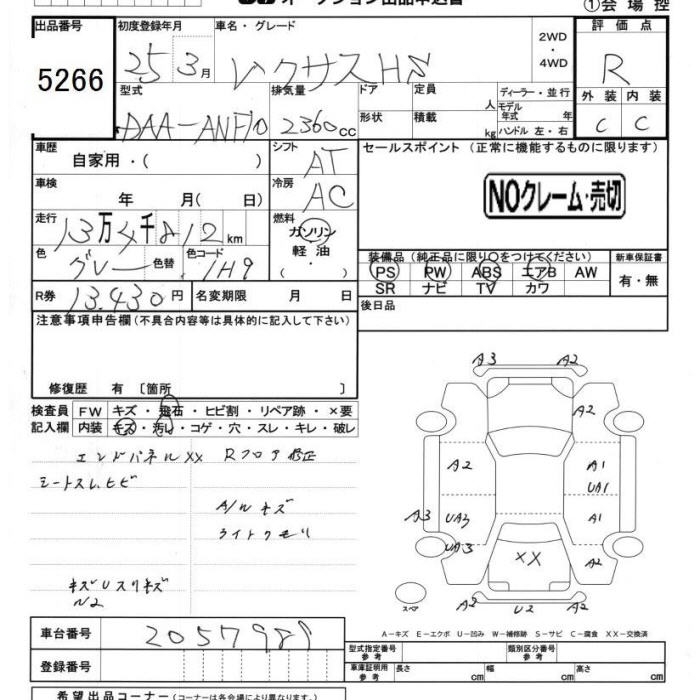 オークション出品申込書
①会場控
出品番号 初度登録年月 車名・グレード 評価点
5266
25 3月 レクサスHS
2WD
・
4WD
R
型式 排気量 ドア 定員 人 ディーラー・並行
モデル年式 年
外装 内装
DAA-ANF10 2360cc 形状 積載 kg ハンドル 左・右
C C
車歴
自家用・( )
シフト
AT
セールスポイント (正常に機能するものに限ります)
車検
年 月( 日)
冷房
AC
NOクレーム・売切
走行
13万4千812km
燃料
ガソリン
軽油
・
色
グレー
色替
色コード
1H9
装備品 (純正品に限り○をつけてください)
新車保証書
PS PW ABS エアB AW
有・無
SR ナビ TV カワ
R券 13,430円 名変期限 月 日
後日品
注意事項申告欄 (不具合内容等は具体的に記入して下さい)
修復歴 有 [箇所 ]
検査員 FW キズ・飛石・ヒビ割・リペア跡・×要
記入欄 内装 キズ・汚れ・コゲ・穴・スレ・キレ・破レ
エンドパネルXX Rフロア修正
シートスレ、ヒビ
A/Wキズ
ライトクモリ
N2
A3 A2
A2
A2 A1
UA1
A3 UA3 A1
UA3 XX A2
スペア
A2 U2 A2
A-キズ E-エクボ U-凹み W-補修跡 S-サビ C-腐食 XX-交換済
車台番号 2057989
型式指定番号
参考
類別区分番号
参考
登録番号
車庫証明用
参考
長さ cm 幅 cm 高さ cm
希望出品コーナー (コーナーは各会場により異なります。)